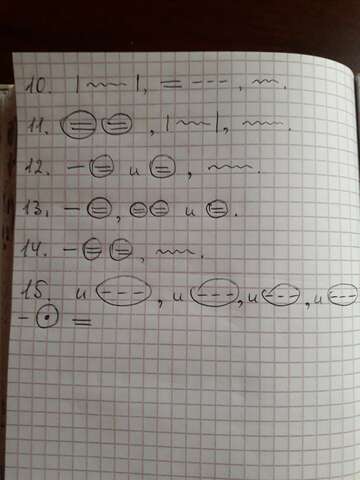 10. | ~~~ |, = - - -, ~~~.
11. (=) (=), | ~~~ |, ~~~.
12. - (=) и (=), ~~~.
13. - (=), (=) (=) и (=).
14. - (=) (=), ~~~.
15. и (- - -), и (- - -), и (- - -), и (- - -)
- (•) =